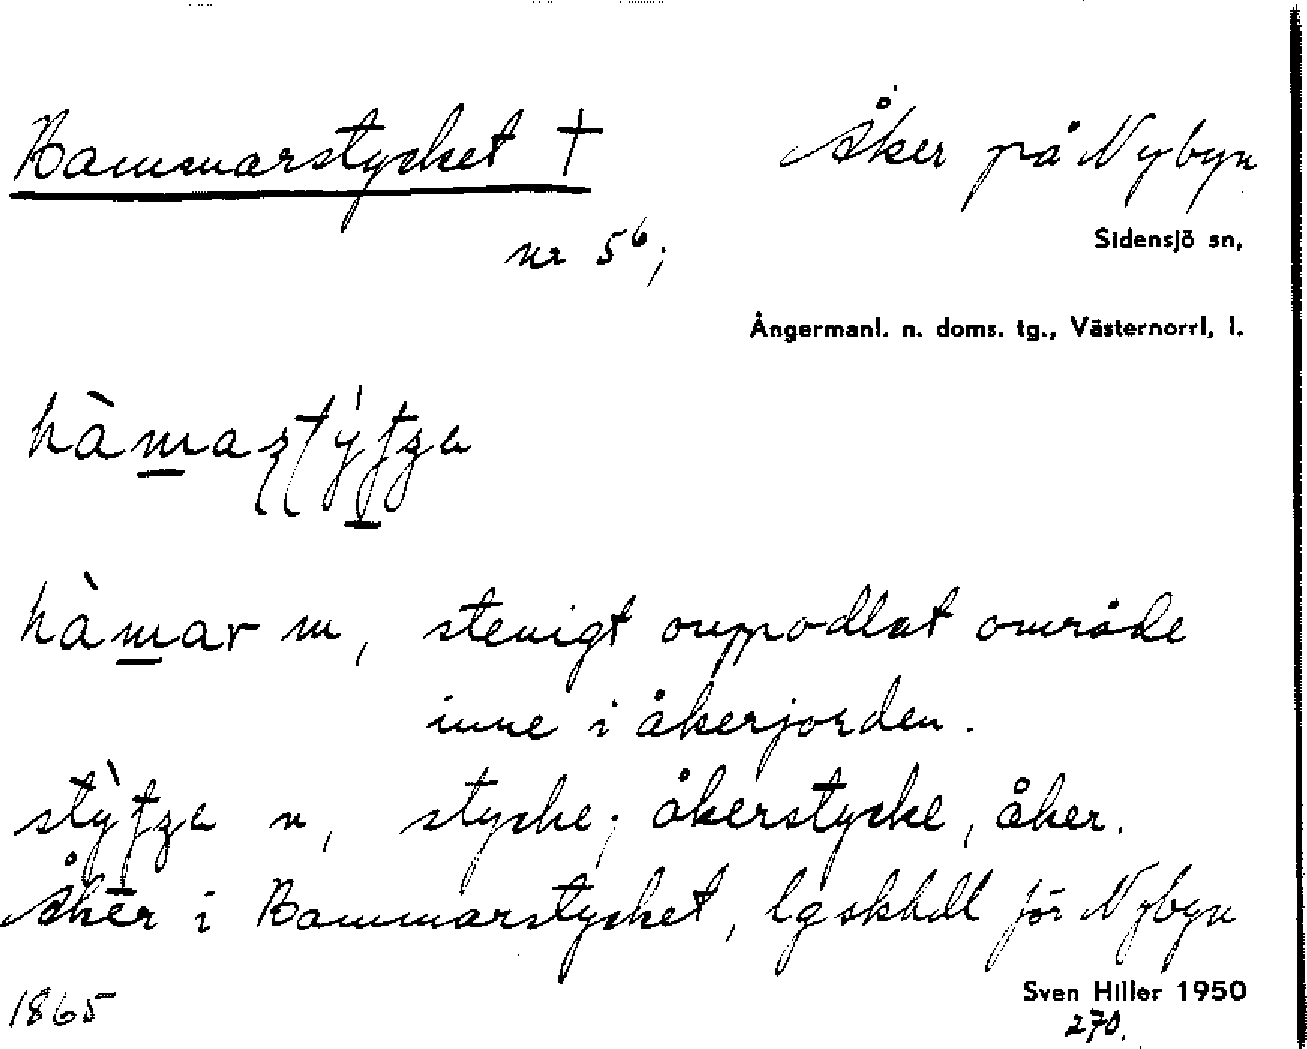 Hammarstycket † Åker på Nybyn
nr 5⁶;
Sidensjö sn,
Ångermanl. n. doms. tg., Västernorrl, l.
hàmar m, stenigt ouppodlat område
inne i åkerjorden.
n, stycke; åkerstycke, åker.
Åker i Hammarstycket, lgskhdl för Nybyn
1865
Sven Hiller 1950
270.